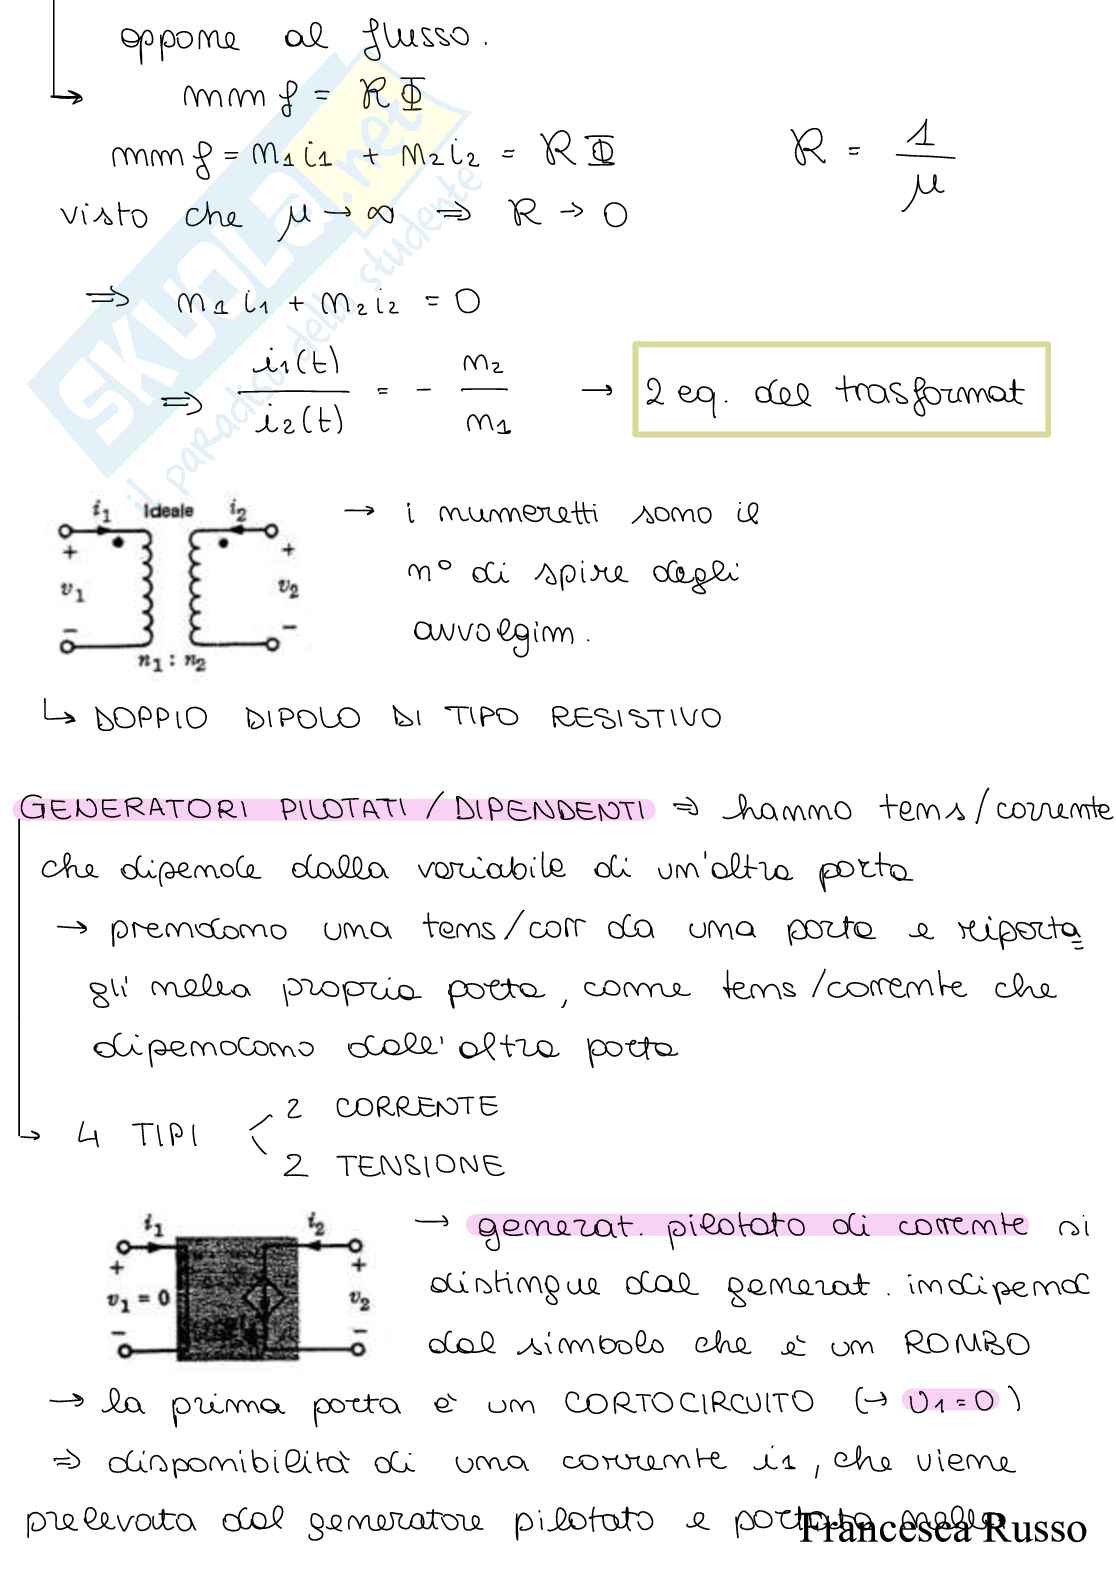 oppone al flusso.
mmf = ℛΦ
mmf = n1i1 + n2i2 = ℛΦ ℛ = 1/μ
visto che μ → ∞ ⇒ ℛ → 0
⇒ n1 i1 + n2 i2 = 0
⇒ i1(t)/i2(t) = - n2/n1 → 2 eq. del trasformat
SKUOLA.net
il paradiso dello studente
i1 Ideale i2
+ v1 - + v2 -
n1 : n2
→ i numeretti sono il
n° di spire degli
avvolgim.
↳ DOPPIO DIPOLO DI TIPO RESISTIVO
GENERATORI PILOTATI / DIPENDENTI ⇒ hanno tens/corrente
che dipende dalla variabile di un'altra porta
→ prendono una tens/corr da una porta e riporta=
gli nella propria porta, come tens/corrente che
dipendono dall'altra porta
↳ 4 TIPI < 2 CORRENTE
2 TENSIONE
i1 i2
+ v1 = 0 - + v2 -
→ generat. pilotato di corrente si
distingue dal generat. indipend
dal simbolo che è un ROMBO
→ la prima porta è un CORTOCIRCUITO (→ v1=0)
⇒ disponibilità di una corrente i1, che viene
prelevata dal generatore pilotato e portata nella
Francesca Russo